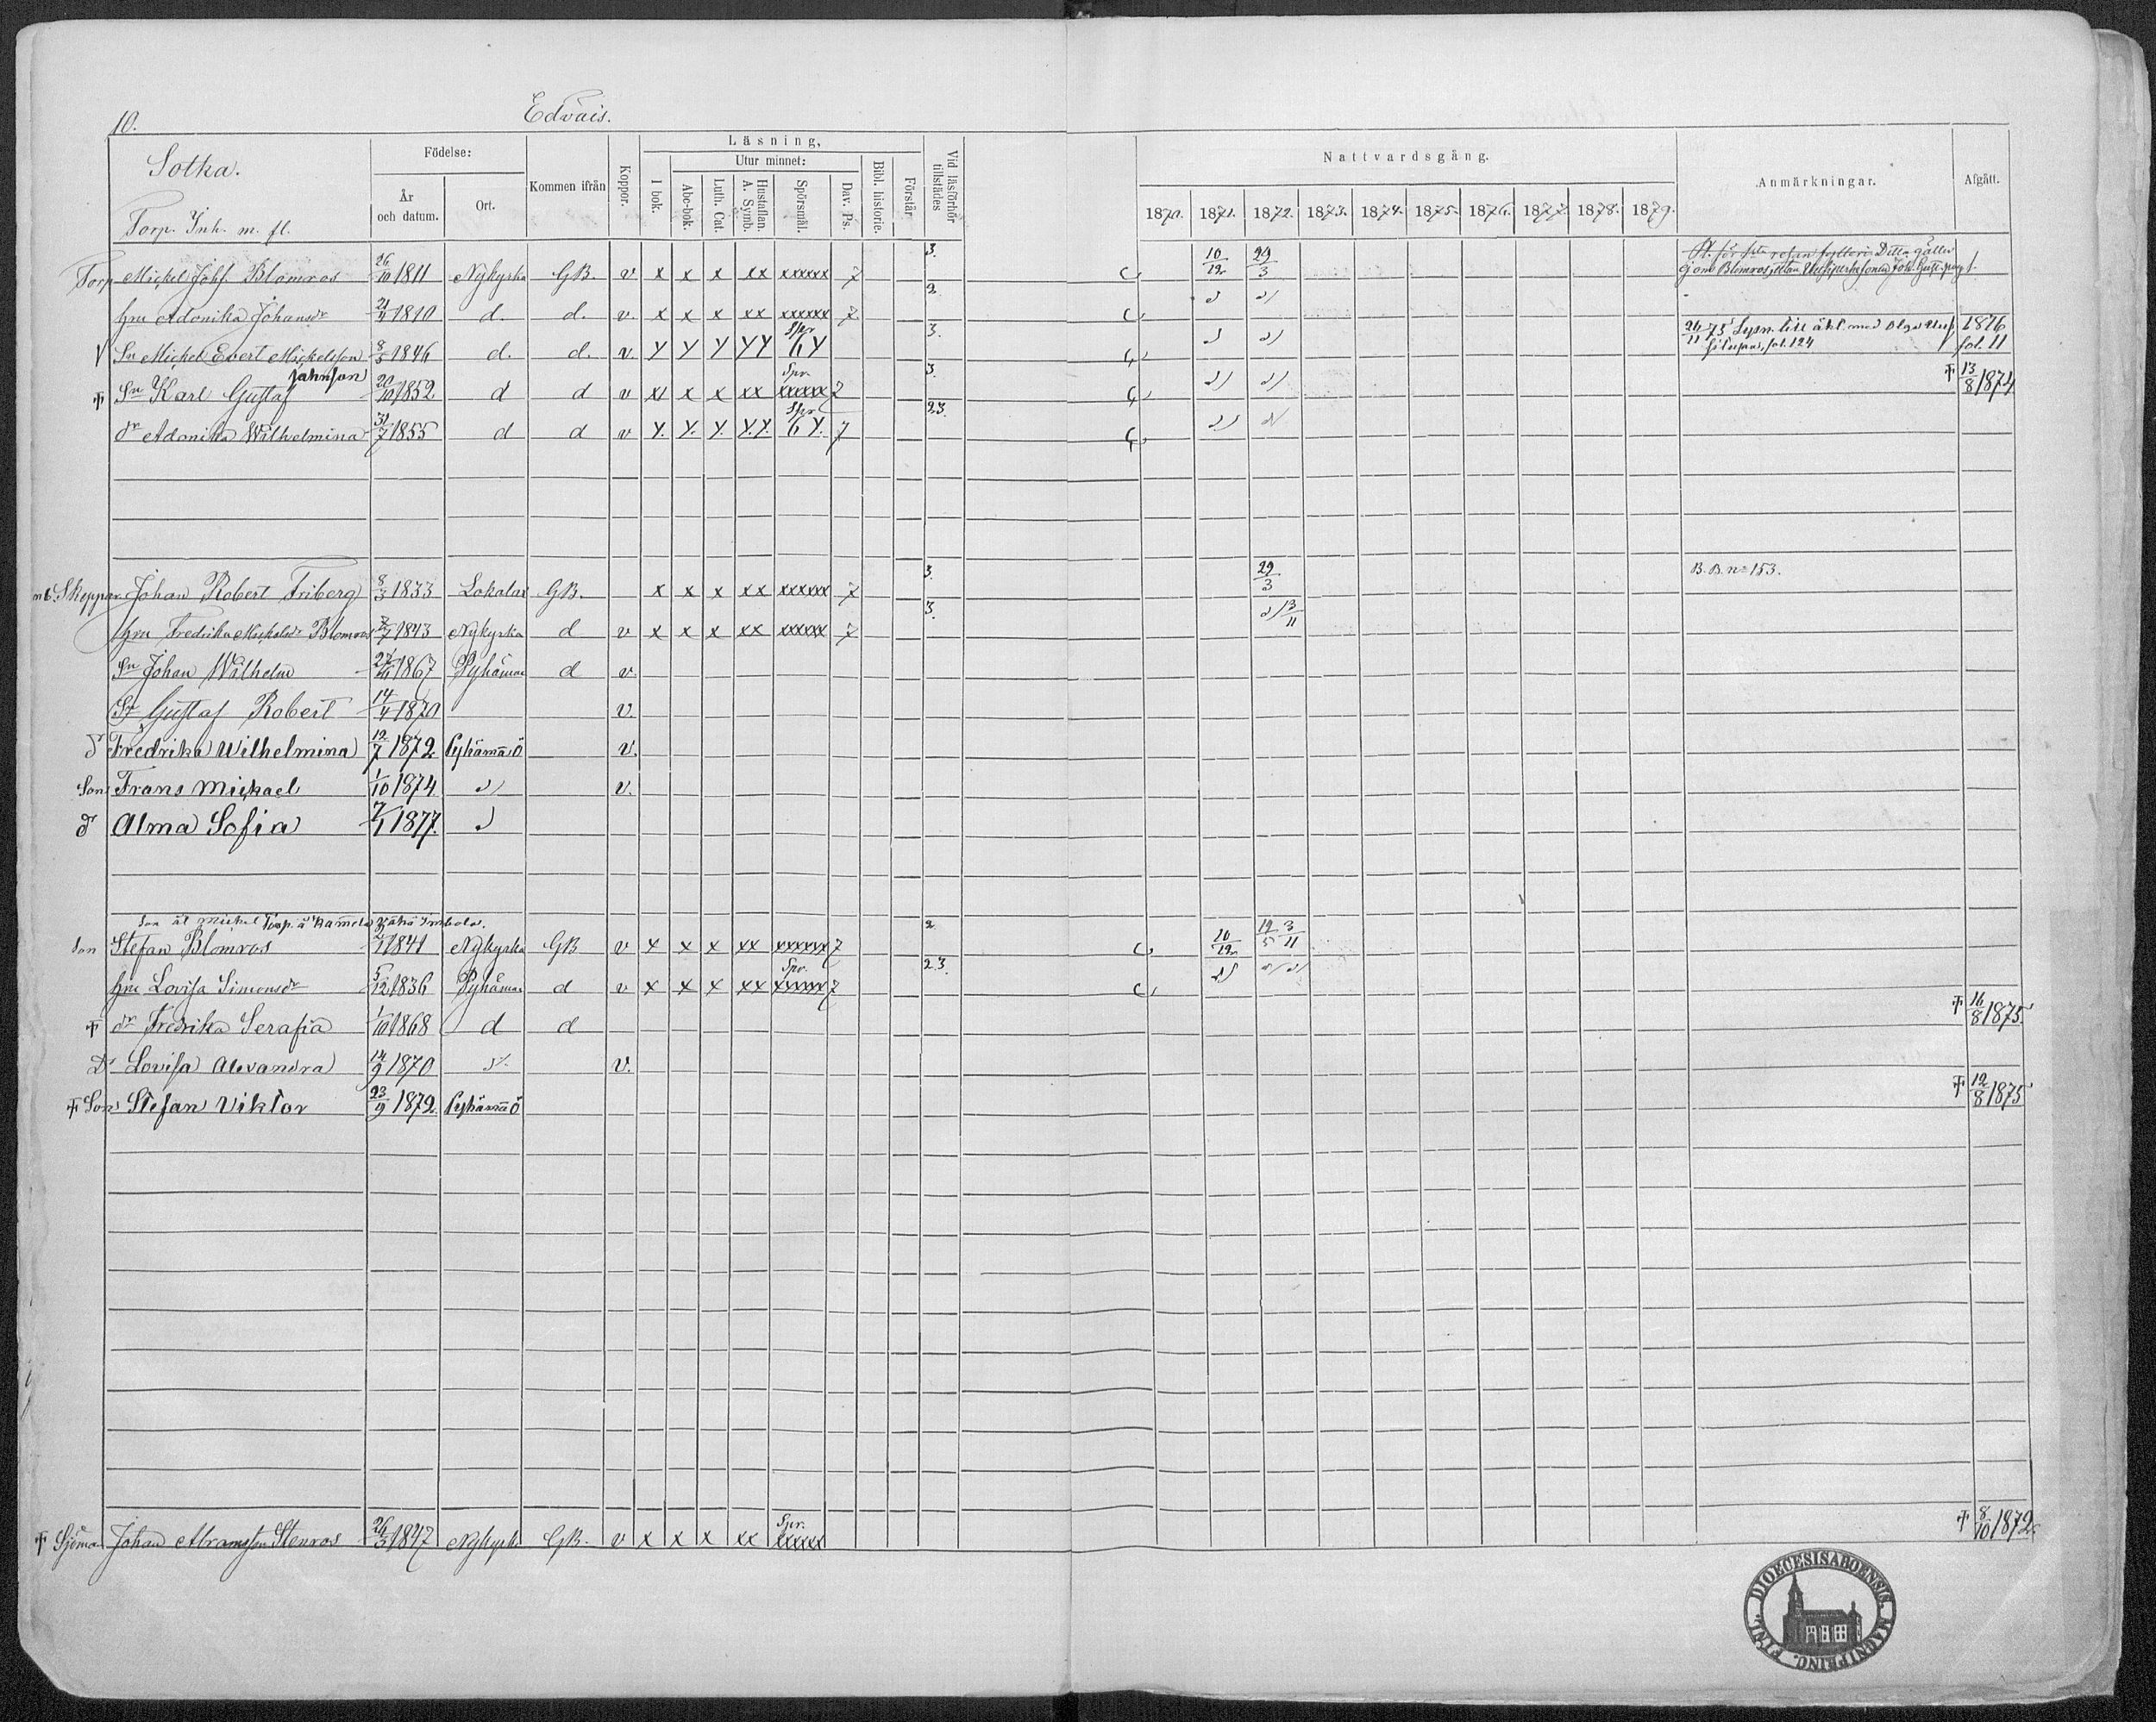 10. Edväis.
Sotka.
Torp. Inh. m. fl.
Födelse:
År och datum.
Ort.
Kommen ifrån
Koppor.
Läsning,
I bok.
Utur minnet:
Abc-bok.
Luth. Cat.
Hustaflan. A. Symb.
Spörsmål.
Dav. Ps.
Bibl. historie.
Förstår
Vid läsförhör tillstädes
Nattvardsgång.
1870. 1871. 1872. 1873. 1874. 1875. 1876. 1877. 1878. 1879.
Anmärkningar.
Afgått.
Torp Mickel Johs. Blomros 26/10 1811 Nykyrka GB. v x x x xx xxxxxx 7 3. 10/12 29/3
hru Adonika Johansdr 21/4 1810 d. d. v. x x x xx xxxxxx 7 2
Sn Mickel Evert Mickelsson 8/5 1846 d. d. v. Y Y Y YY Spr 6 Y 3. 26/11 75 Lysn. till äkt. med Olga fol. 124 1876 fol. 11
Johnsson
† Sn Karl Gustaf 20/10 1852 d d v x x x xx Spr. xxxxxx 7 3. † 13/8 1874
dr Adonika Wilhelmina 31/7 1855 d d v Y. Y. Y. Y.Y. Spr 6 Y. 7 23.
Skeppar Johan Robert Friberg 8/3 1833 Lokalax GB. x x x xx xxxxxx 7 3. 29/3 B. B. no 153.
hru Fredrika Mickelsdr Blomros 1843 Nykyrka d v x x x xx xxxxxx 7 3. 13/11
Sn Johan Wilhelm 1867 Pyhämaa d v.
Sn Gustaf Robert 14/4 1870 v.
d Fredrika Wilhelmina 12/7 1872 Pyhämaa Ö v.
Son Frans Mickael 1/10 1874 v.
d Alma Sofia 7/1 1877.
Son ät Mickel Torp. å Kamela Vähä Imbola.
Son Stefan Blomros 1841 Nykyrka GB v x x x xx xxxxxx 7 2 10/12 12/5 3/11
hru Lovisa Simonsdr 5/12 1836 Pyhämaa d v x x x xx Spr. xxxxxx 7 23.
† dr Fredrika Serafia 1/10 1868 d d † 16/8 1875.
Dr Lovisa Alexandra 14/9 1870 v.
† Son Stefan Viktor 23/9 1872. Pyhämaa Ö † 12/8 1875
† Sjöman Johan Abramsson Stenros 26/3 1847 Nykyrka GB. v x x x xx Spr. xxxxx † 8/10 1872.
DIOECESIS ABOENSIS. MAGNI PRINC. FINL.